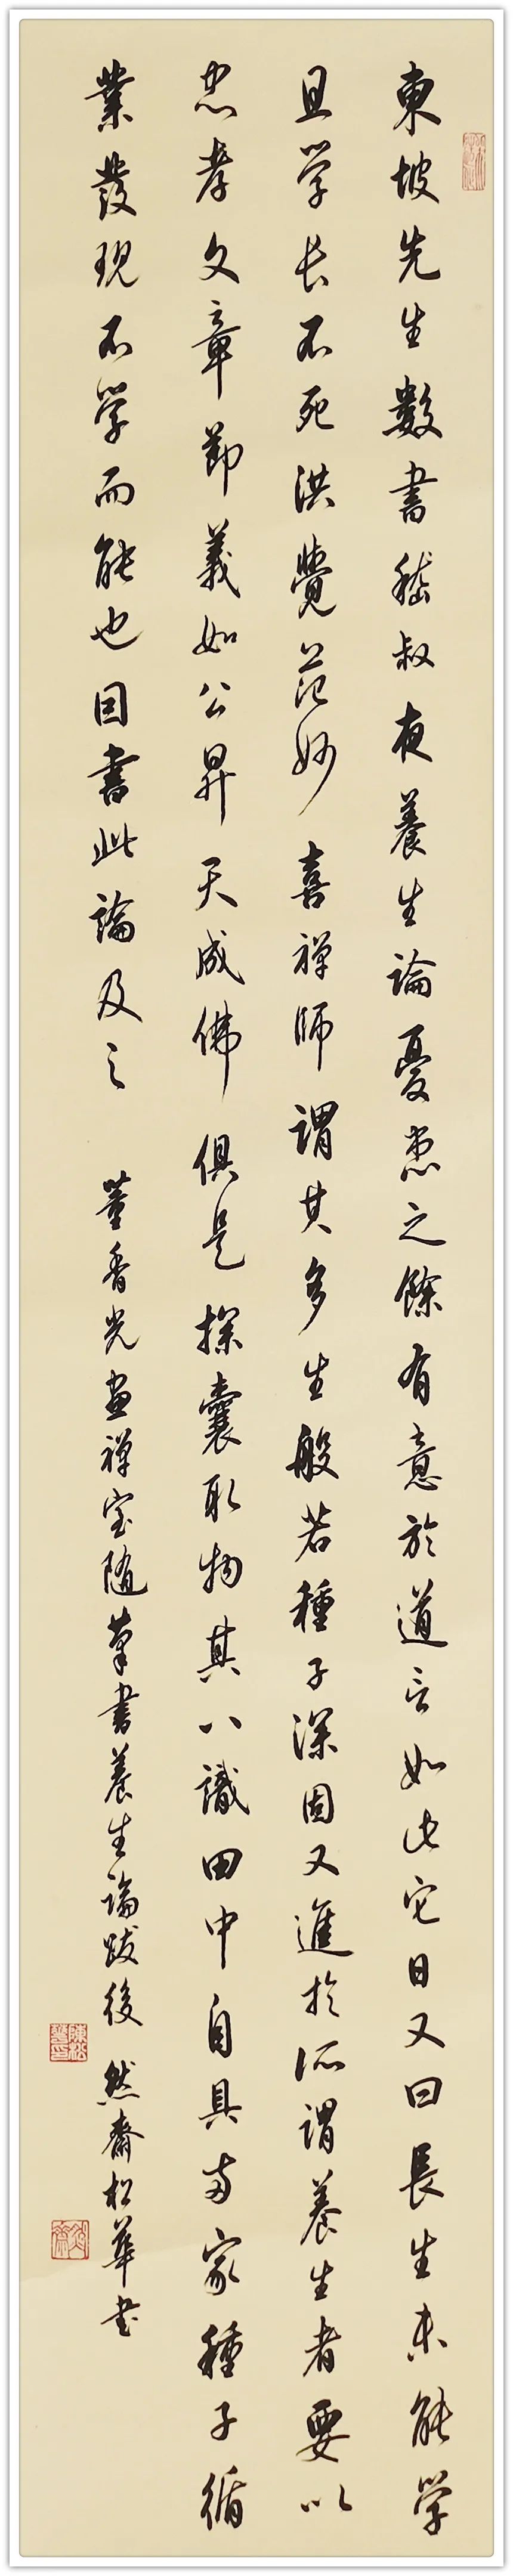 東坡先生數書嵇叔夜養生論憂患之餘有意於道言如此它日又曰長生未能學
且学长不死洪覺范妙喜禅師謂其多生般若種子深固又進於所謂養生者要以
忠孝文章節義如公昇天成佛俱是探囊取物其八識田中自具两家種子循
業發現不学而能也因書此論及之 董香光画禅室随筆書養生論跋後 然齋松華书
陳松華印